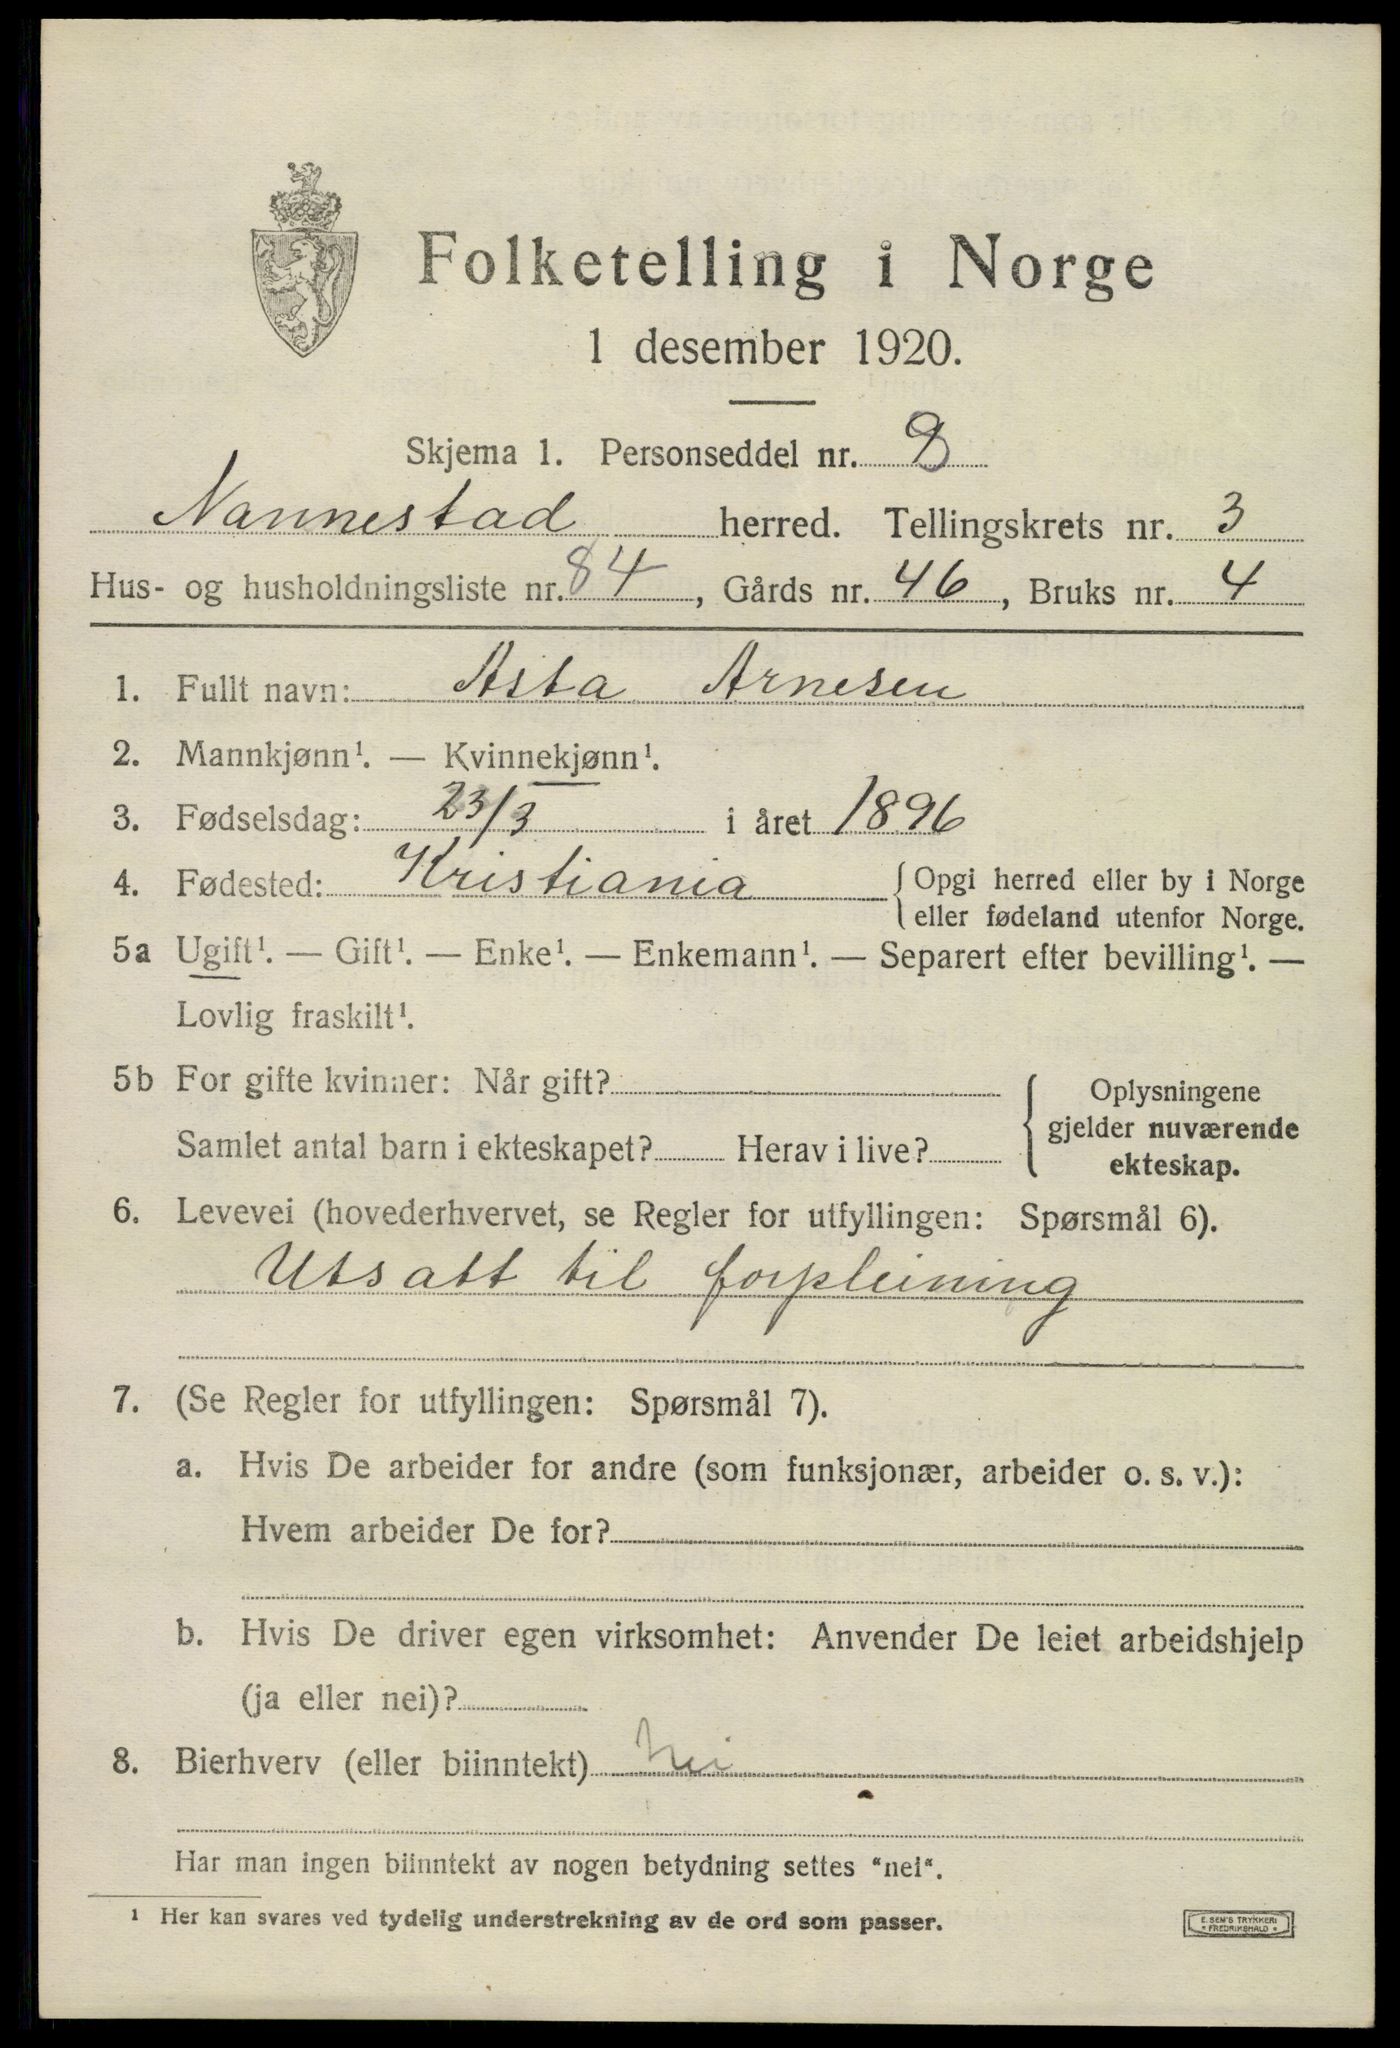 Folketelling i Norge
1 desember 1920.
Skjema 1. Personseddel nr. 8
Nannestad herred. Tellingskrets nr. 3
Hus- og husholdningsliste nr. 84, Gårds nr. 46, Bruks nr. 4
1. Fullt navn: Asta Arnesen
2. Mannkjønn¹. — Kvinnekjønn¹.
3. Fødselsdag: 23/3 i året 1896
4. Fødested: Kristiania { Opgi herred eller by i Norge
eller fødeland utenfor Norge.
5a Ugift¹. — Gift¹. — Enke¹. — Enkemann¹. — Separert efter bevilling¹. —
Lovlig fraskilt¹.
5b For gifte kvinner: Når gift?
Samlet antal barn i ekteskapet? Herav i live?
{ Oplysningene
gjelder nuværende
ekteskap.
6. Levevei (hovederhvervet, se Regler for utfyllingen: Spørsmål 6).
Utsatt til forpleining
7. (Se Regler for utfyllingen: Spørsmål 7).
a. Hvis De arbeider for andre (som funksjonær, arbeider o. s. v.):
Hvem arbeider De for?
b. Hvis De driver egen virksomhet: Anvender De leiet arbeidshjelp
(ja eller nei)?
8. Bierhverv (eller biinntekt) Nei
Har man ingen biinntekt av nogen betydning settes "nei".
¹ Her kan svares ved tydelig understrekning av de ord som passer.
E. SEM'S TRYKKERI
* FREDRIKSHALD *